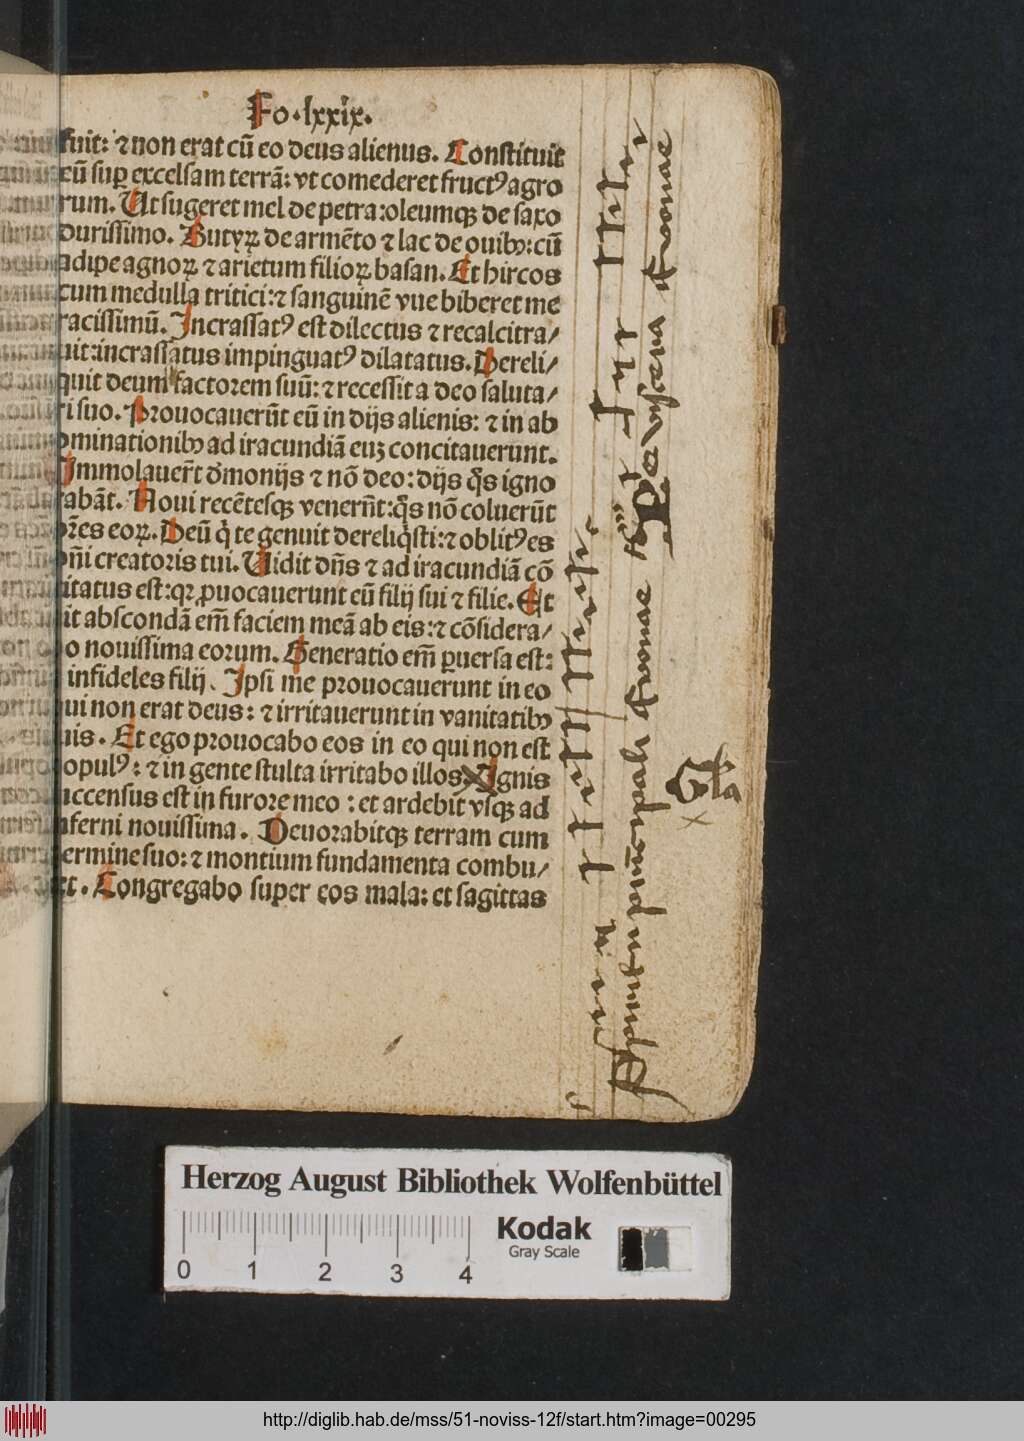 Fo.lxxix.
fuit: ⁊ non erat cū eo deus alienus. Constituit
eū sup̱ excelsam terrā: vt comederet fructꝰ agro
rum. Ut sugeret mel de petra: oleumqꝫ de saxo
durissimo. Butyꝝ de armēto ⁊ lac de ouibꝰ: cū
adipe agnoꝝ ⁊ arietum filioꝝ basan. Et hircos
cum medulla tritici: ⁊ sanguinē vue biberet me
racissimū. Incrassatꝰ est dilectus ⁊ recalcitra/
uit: incrassatus impinguatꝰ dilatatus. Dereli/
quit deum factorem suū: ⁊ recessit a deo saluta/
ri suo. Prouocauerūt eū in dijs alienis: ⁊ in ab
ominationibꝰ ad iracundiā euꝫ concitauerunt.
Immolauer̄t dmonijs ⁊ nō deo: dijs q̄s igno
rabāt. Noui recētesqꝫ vener̄nt: q̄s nō coluerūt
pr̄es eoꝝ. Deū q̇ te genuit dereliq̇sti: ⁊ oblitꝰ es
dn̄i creatoris tui. Uidit dn̄s ⁊ ad iracundiā cō
citatus est: qꝛ ꝓuocauerunt eū filij sui ⁊ filie. Et
ait abscondā em̄ faciem meā ab eis: ⁊ cōsidera/
bo nouissima eorum. Generatio em̄ ꝑuersa est:
⁊ infideles filij. Ipsi me prouocauer̄unt in eo
qui non erat deus: ⁊ irritauerunt in vanitatibꝰ
suis. Et ego prouocabo eos in eo qui non est
populꝰ: ⁊ in gente stulta irritabo illos Ignis
succensus est in furore meo: et ardebit vsqꝫ ad
inferni nouissima. Deuorabitqꝫ terram cum
germine suo: ⁊ montium fundamenta combu/
ret. Congregabo super eos mala: et sagittas
Gla
Herzog August Bibliothek Wolfenbüttel
Kodak
Gray Scale
0 1 2 3 4
http://diglib.hab.de/mss/51-noviss-12f/start.htm?image=00295